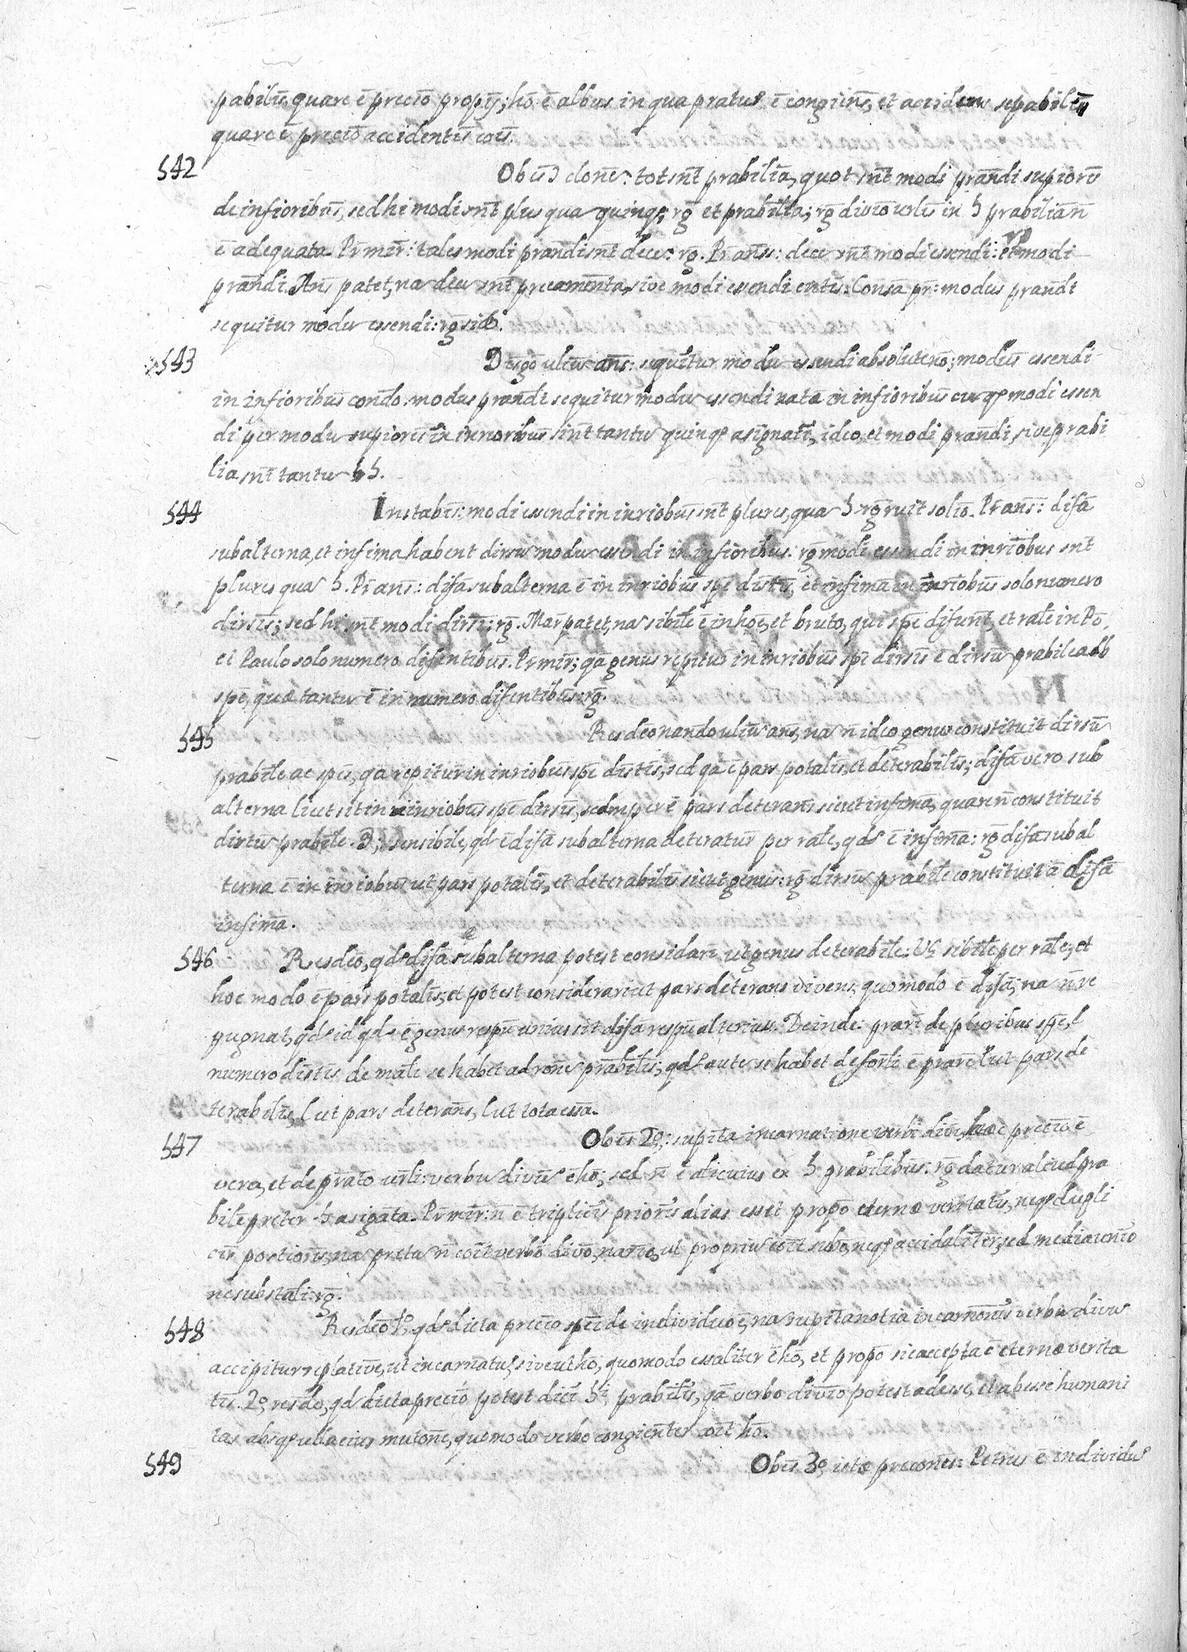 pabilis, quare ē precio propij; ho ē albus in qua pratus ē congiens, et accidens sepabile,
quare ē precio accidentis cois.
542 Obiis 3 clone: tot snt prabilia, quot snt modi prandi supioris
de infioribus, sed hi modi snt plus qua quinq; rg et prabilia; rg divio ulis in 5 prabilia n
ē adequata. Pr mir: tales modi prandi snt dece: rg. Pr ans: dece snt modi essendi: rg modi
prandi. Ans patet, na dece snt precamenta, sive modi essendi entis. Consa pr: modus prandi
sequitur modu essendi: rg si 
543 Disgo ulius ans: sequitur modu essendi absolute no; modus essendi
in infioribus condo. modus prandi sequitur modu essendi nata in infioribus cuq modi essen
di per modu supioris in inrioribus sint tantu quinq asignati, ideo et modi prandi, sive prabi
lia snt tantu 5.
544 Instabis: modi essendi in inrioribus snt plures, qua 5. rg ruit solio. Pr ans: difa
subalterna, et infima habent dirsu modu essendi in infioribus: rg modi essendi in inriobus snt
plures qua 5. Pr ans: difa subalterna ē in inriobus spe distis, et infima in inriobus solo numero
dirsis; sed hi snt modi dirsi: rg. Mar patet, na sibile ē in hoe, et bruto, qui spe difunt, et rale in Po,
et Paulo solo numero difentibus. Pr mir; qa genus repitur in inriobus spe dirsis ē dirsu prabile ab
spe, quæ tantu ē in numero difentibus: rg.
545 Resdeo nando uliu ans, na n ideo genus constituit dirsu
prabile ac spes, qa repitur in inriobus spe distis, sed qa ē pars potalis, et deterabilis; difa vero sub
alterna licet sit in inriobus spe dirsis, semper ē pars deterans sicut infima, quare n constituit
distu prabile. 3; sensibile, qd ē difa subalterna deteratur per rale, qd ē infima: rg difa subal
terna ē in inriobus ut pars potalis, et deterabilis sicut genus: rg dirsu prabile constituit a difa
infima.
546 Resdeo, qd difa subalterna potest considari, ut genus deterabile: Vg sibile per rale, et
hoc modo ē pars potalis, et potest considerari ut pars deterans vivens, quomodo ē difa; na n re
pugnat, qd id qd ē genus respu unius sit difa respu alterius. Deinde: prari de pluribus spe, l
numero distis de male se habet ad rone prabilis; qd aute se habet de forli ē prari l ut pars de
terabilis, l ut pars deterans, l ut tota essa.
547 Obiis 2o: supita incarnatione verbi divi, hæc precio ē
vera, et de prato urli: verbu divu ē ho; sed n ē alicuius ex 5 prabilibus: rg datur aliud pra
bile preter 5 asigata. Pr mir: n ē triplicis prioris alias esset propo eternæ veritatis, neq dupli
cis portioris, na preta n coit verbo divo, nario, ut propriu coit subo, neq accidaliter, sed media unio
ne substali: rg.
548 Resdeo 1o, qd dicta precio spei de individuo ē, na supita notia incarnonis verbu divu
accipitur replative, ut incarnatu, sive ut ho, quomodo essaliter ē ho, et propo sic accepta ē eternæ verita
tis. 2o resdo, qd dicta precio potest dici 5i prabilis, qa verbo divio potest adesse, et abesse humani
tas absq ulla eius mutone, quomodo verbo congienter coit ho.
549 Obiis 3o istæ precones: Petrus ē individu